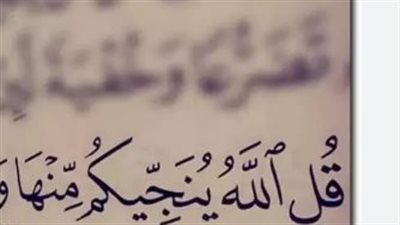 تَضَرُّعًا وَخُفْيَةً
قُلِ ٱللَّهُ يُنَجِّيكُم مِّنْهَا